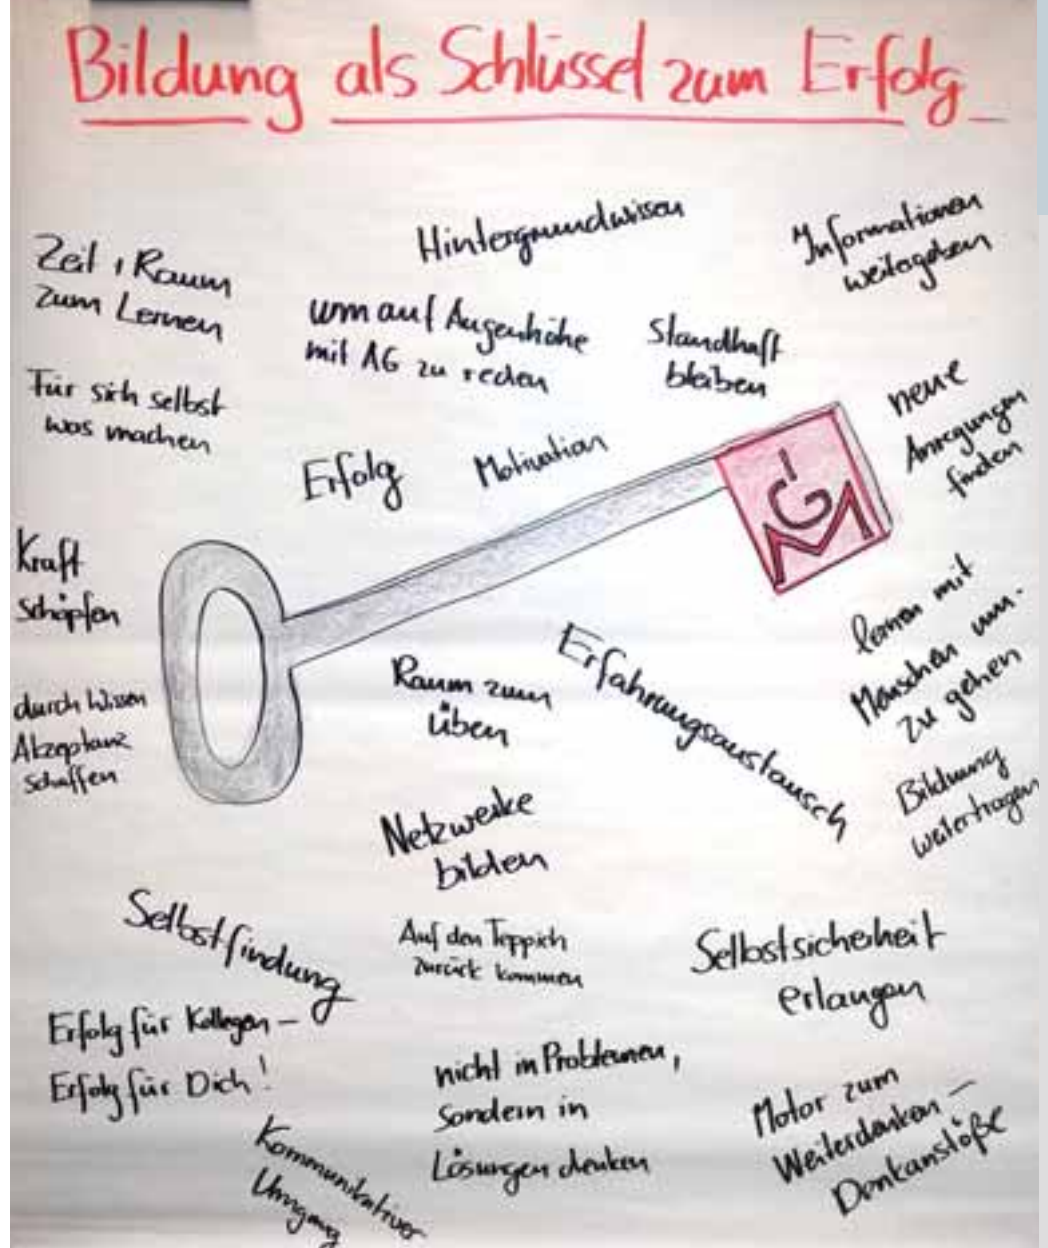 Bildung als Schlüssel zum Erfolg
Hintergrundwissen
Informationen
weitergeben
Zeit, Raum
zum Lernen
um auf Augenhöhe
mit AG zu reden
Standhaft
bleiben
Für sich selbst
was machen
neue
Anregungen
finden
Erfolg
Motivation
IGM
Kraft
schöpfen
lernen mit
Menschen um-
zu gehen
durch Wissen
Akzeptanz
schaffen
Raum zum
üben
Erfahrungsaustausch
Bildung
weitertragen
Netzwerke
bilden
Selbstfindung
Auf den Teppich
zurück kommen
Selbstsicherheit
erlangen
Erfolg für Kollegen –
Erfolg für Dich!
nicht in Problemen,
sondern in
Lösungen denken
Motor zum
Weiterdenken –
Denkanstöße
Kommunikativer
Umgang